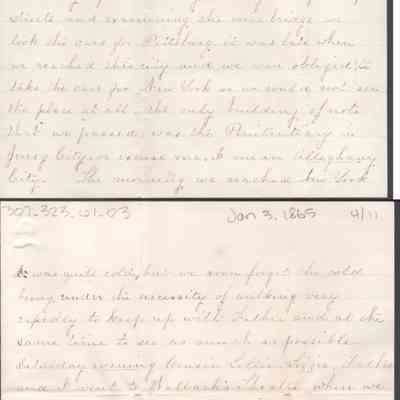 streets and examining the wire bridge we
took the cars for Pittsburg it was late when
we reached this city and we were obliged to
take the cars for New York so we could not see
the place at all the only building of note
that we passed, was the Penitentiary in
Jersey City, of course I mean Alleghany
City. The morning we reached New York
302-323_01-03 Jan 3, 1865 4/11
it was quite cold, but we soon forgot the cold
being under the necessity of walking very
rapidly to keep up with Father and at the
same time to see as much as possible
Saturday evening Cousin Lottie, Lizzie, Father
and I went to Wallack's Theatre when we